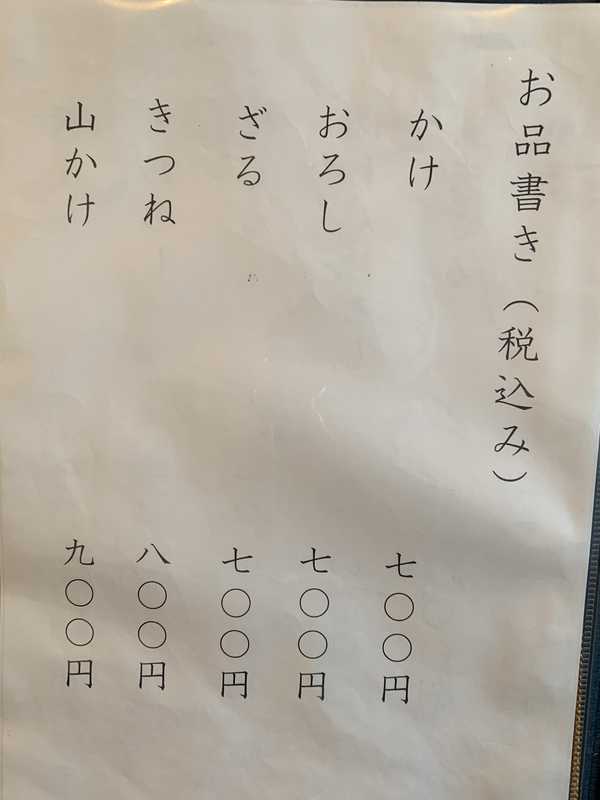 お品書き（税込み）
かけ 七〇〇円
おろし 七〇〇円
ざる 七〇〇円
きつね 八〇〇円
山かけ 九〇〇円